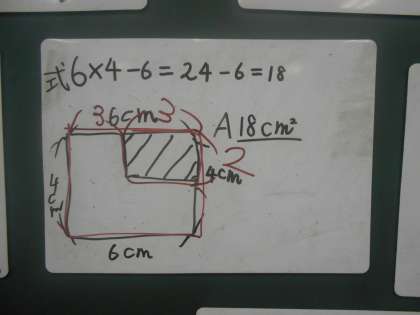 式6×4-6=24-6=18
36cm3
A 18cm²
2
4cm
4cm
6cm